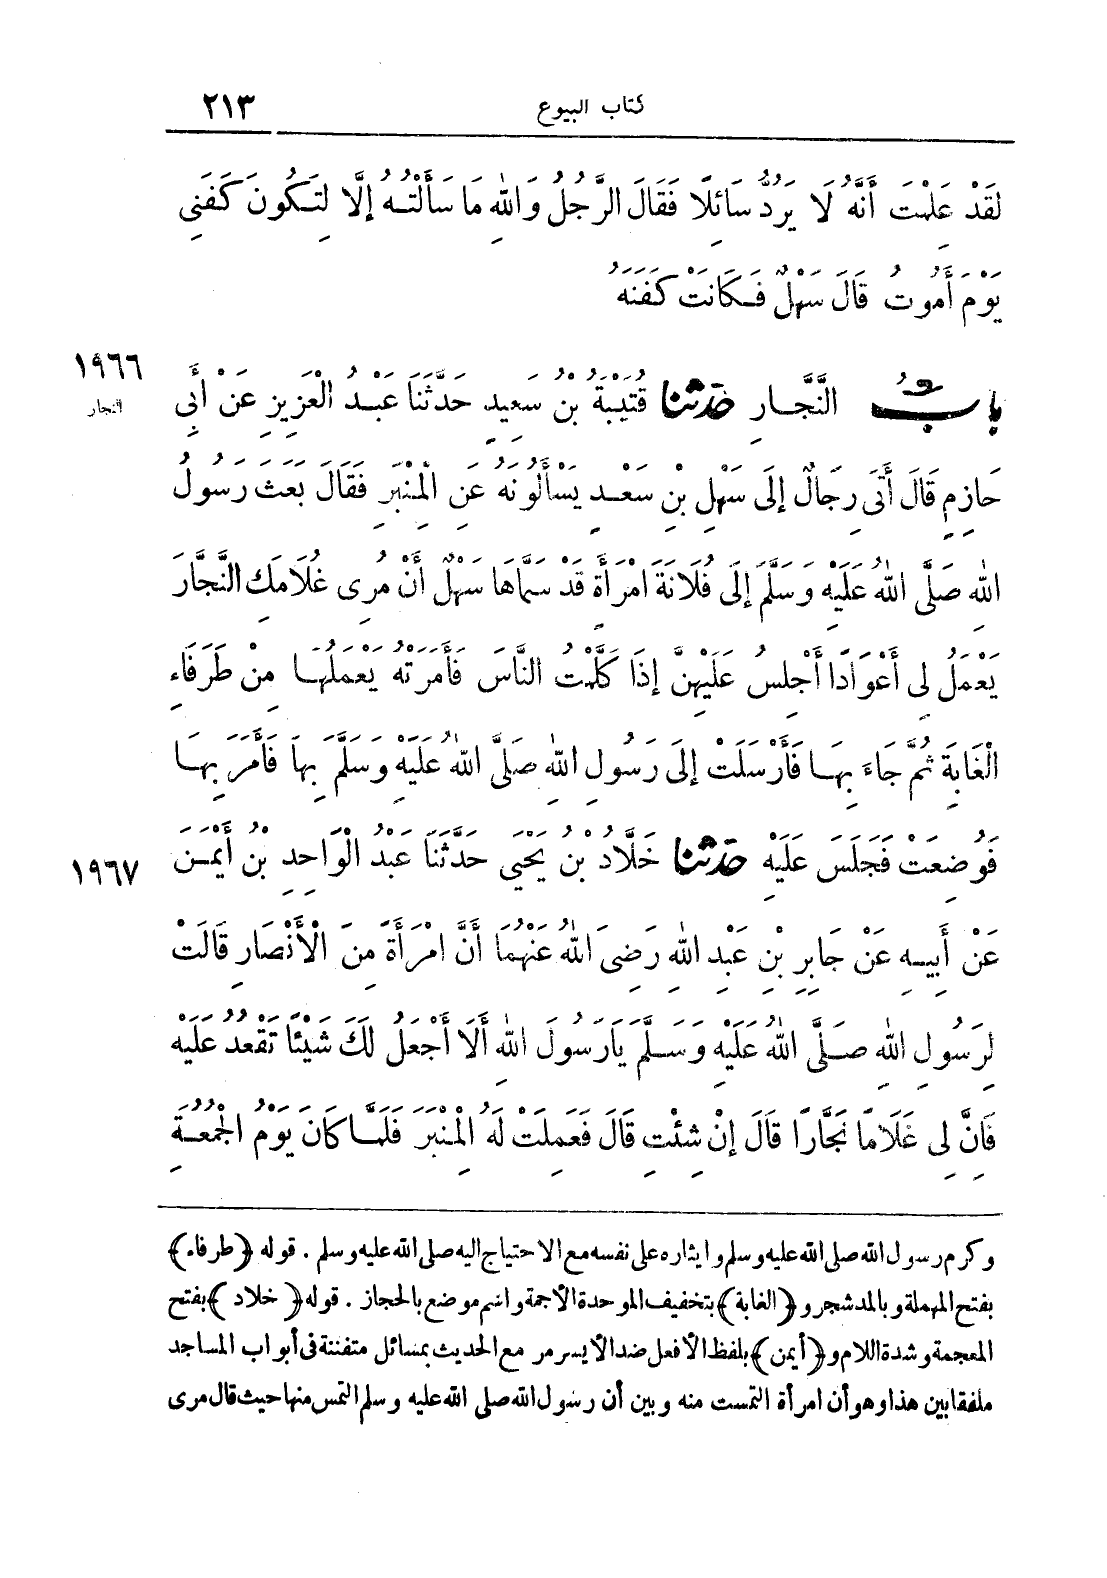 كتاب البيوع ٢١٣
لَقَدْ عَلِمْتَ أَنَّهُ لَا يَرُدُّ سَائِلًا فَقَالَ الرَّجُلُ وَاللهِ مَا سَأَلْتُهُ إِلَّا لِتَكُونَ كَفَنِي
يَوْمَ أَمُوتُ قَالَ سَهْلٌ فَكَانَتْ كَفَنَهُ
١٩٦٦
النجار
بَابُ النَّجَّارِ حَدَّثَنَا قُتَيْبَةُ بْنُ سَعِيدٍ حَدَّثَنَا عَبْدُ الْعَزِيزِ عَنْ أَبِي
حَازِمٍ قَالَ أَتَى رِجَالٌ إِلَى سَهْلِ بْنِ سَعْدٍ يَسْأَلُونَهُ عَنِ الْمِنْبَرِ فَقَالَ بَعَثَ رَسُولُ
اللهِ صَلَّى اللهُ عَلَيْهِ وَسَلَّمَ إِلَى فُلَانَةَ امْرَأَةٍ قَدْ سَمَّاهَا سَهْلٌ أَنْ مُرِى غُلَامَكِ النَّجَّارَ
يَعْمَلُ لِي أَعْوَادًا أَجْلِسُ عَلَيْهِنَّ إِذَا كَلَّمْتُ النَّاسَ فَأَمَرَتْهُ يَعْمَلُهَا مِنْ طَرَفَاءِ
الْغَابَةِ ثُمَّ جَاءَ بِهَا فَأَرْسَلَتْ إِلَى رَسُولِ اللهِ صَلَّى اللهُ عَلَيْهِ وَسَلَّمَ بِهَا فَأَمَرَ بِهَا
فَوُضِعَتْ فَجَلَسَ عَلَيْهِ حَدَّثَنَا خَلَّادُ بْنُ يَحْيَى حَدَّثَنَا عَبْدُ الْوَاحِدِ بْنُ أَيْمَنَ
١٩٦٧
عَنْ أَبِيهِ عَنْ جَابِرِ بْنِ عَبْدِ اللهِ رَضِيَ اللهُ عَنْهُمَا أَنَّ امْرَأَةً مِنَ الْأَنْصَارِ قَالَتْ
لِرَسُولِ اللهِ صَلَّى اللهُ عَلَيْهِ وَسَلَّمَ يَارَسُولَ اللهِ أَلَا أَجْعَلُ لَكَ شَيْئًا تَقْعُدُ عَلَيْهِ
فَإِنَّ لِي غُلَامًا نَجَّارًا قَالَ إِنْ شِئْتِ قَالَ فَعَمِلَتْ لَهُ الْمِنْبَرَ فَلَمَّا كَانَ يَوْمُ الْجُمُعَةِ
وكرم رسول الله صلى الله عليه وسلم وايثاره على نفسه مع الاحتياج اليه صلى الله عليه وسلم . قوله (طرفاء)
بفتح المهملة وبالمد شجر و (الغابة) بتخفيف الموحدة الأجمة واسم موضع بالحجاز . قوله (خلاد) بفتح
المعجمة وشدة اللام و (أيمن) بلفظ الأفعل ضد الأيسر مر مع الحديث بمسائل متفننة في أبواب المساجد
ملفقا بين هذا وهو أن امرأة التمست منه وبين أن رسول الله صلى الله عليه وسلم التمس منها حيث قال مرى